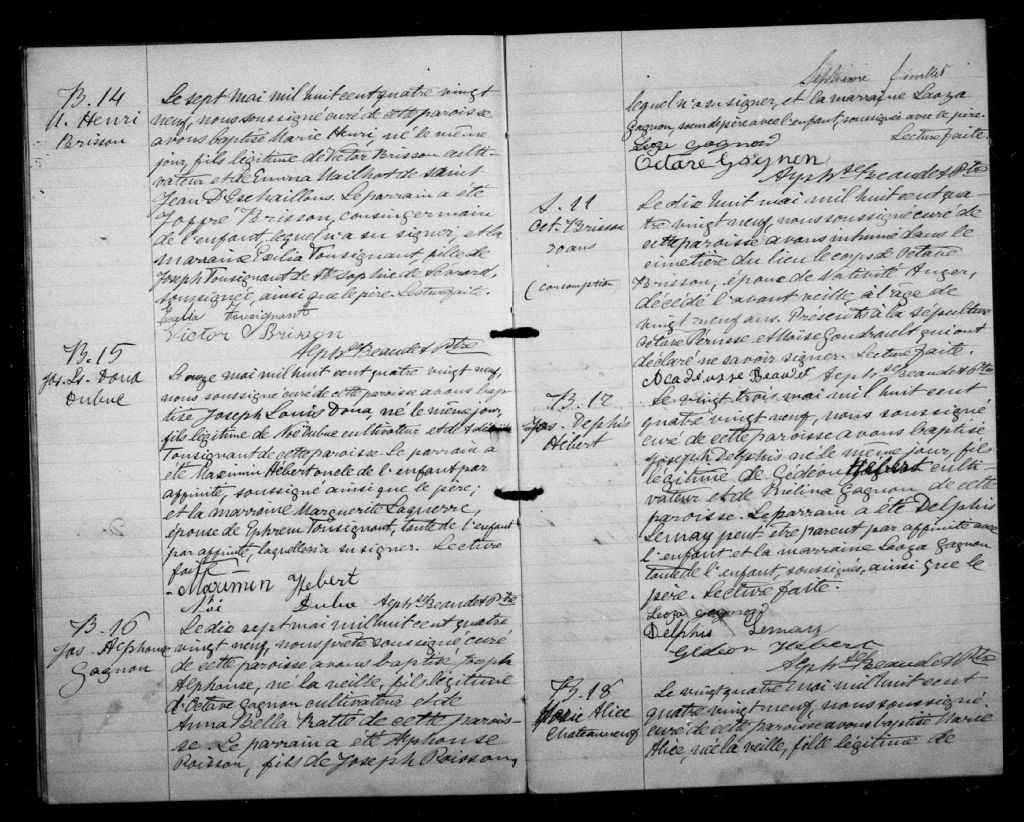 B. 14
M. Henri
Brisson
Le sept mai mil huit cent quatre vingt
neuf, nous soussigné curé de cette paroisse
avons baptisé Marie Henri, né le même
jour, fils légitime de Victor Brisson culti-
vateur et de Emma Mailhot de saint
Jean D'Eschaillons. Le parrain a été
Joffre Brisson, cousin germain
de l'enfant, lequel n'a su signer, et la
marraine Exélia Tousignant, fille de
Joseph Tousignant de Ste Sophie de Levrard,
soussignée, ainsi que le père. Lecture faite.
Exelia Tousignant
Victor Brisson
Alphse Beaudet Ptre
B. 15
Jos. Ls. Dona
Dubuc
Le onze mai mil huit cent quatre vingt neuf,
nous soussigné curé de cette paroisse avons bap-
tisé Joseph Louis Dona, né le même jour,
fils légitime de Noé Dubuc cultivateur et de
Tousignant de cette paroisse. Le parrain a
été Maximin Hébert oncle de l'enfant par
affinité, soussigné ainsi que le père;
et la marraine Marguerite Laquerre,
épouse de Ephrem Tousignant, tante de l'enfant
par affinité, laquelle n'a su signer. Lecture
faite
Maximin Hebert
Noi Dubuc Alphse Beaudet Ptre
B. 16
Jos. Alphonse
Gagnon
Le dix sept mai mil huit cent quatre
vingt neuf, nous prêtre soussigné curé
de cette paroisse avons baptisé Joseph
Alphonse, né la veille, fils légitime
d'Octave Gagnon cultivateur et de
Anna Bella Ratté de cette parois-
se. Le parrain a été Alphonse
Poisson, fils de Joseph Poisson,
feuillet
lequel n'a su signer, et la marraine Laoza
Gagnon, soeur de père avec l'enfant, soussignée avec le père.
Lecture faite.
Leoza Gagnon
Octave Gagnon
Alphse Beaudet Ptre
S. 11
Oct. Brisson
30 ans
(consomption)
Le dix huit mai mil huit cent qua-
tre vingt neuf, nous soussigné curé de
cette paroisse avons inhumé dans le
cimetière du lieu le corps de Octave
Brisson, époux de Nativité Auger,
décédé l'avant veille, à l'âge de
vingt neuf ans. Présents à la sépulture
Octave Pérusse et Moïse Goudrault qui ont
déclaré ne savoir signer. Lecture faite.
Beaudet Alphse Beaudet Ptre
B. 17
Jos. Delphis
Hébert
Le vingt trois mai mil huit cent
quatre vingt neuf, nous soussigné
curé de cette paroisse avons baptisé
Joseph Delphis né le même jour, fils
légitime de Gédéon Hébert culti-
vateur et de Mélina Gagnon de cette
paroisse. Le parrain a été Delphis
Lemay peut-être parent par affinité avec
l'enfant et la marraine Laoza Gagnon
tante de l'enfant, soussignés, ainsi que le
père. Lecture faite.
Leoza Gagnon
Delphis Lemay
Gédéon Hebert
Alphse Beaudet Ptre
B. 18
Marie Alice
Chateauneuf
Le vingt quatre mai mil huit cent
quatre vingt neuf, nous soussigné
curé de cette paroisse avons baptisé Marie
Alice, née la veille, fille légitime de